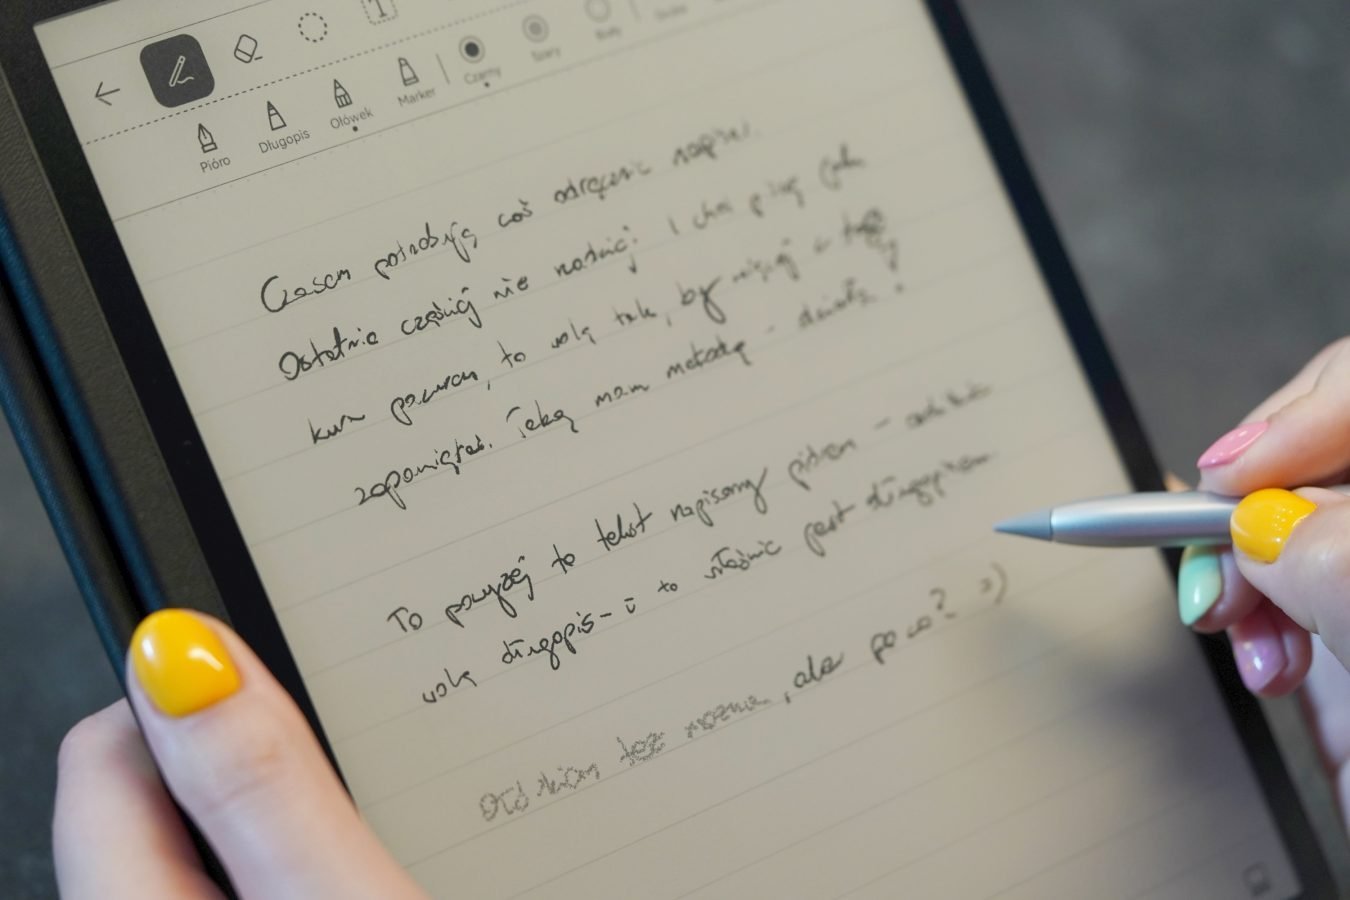 Pióro Długopis Ołówek Marker Czarny Szary Biały
Czasem potrzebuję coś odręcznie napisać.
Ostatnio częściej nie radzić! I choć piszę jak
kura pazurem, to wolę tak, by więcej z tego
zapamiętać. Taką mam metodę - działa!
To powyżej to tekst napisany piórem -
wolę długopis - i to właśnie jest długopisem.
Ołówkiem też można, ale po co? :)